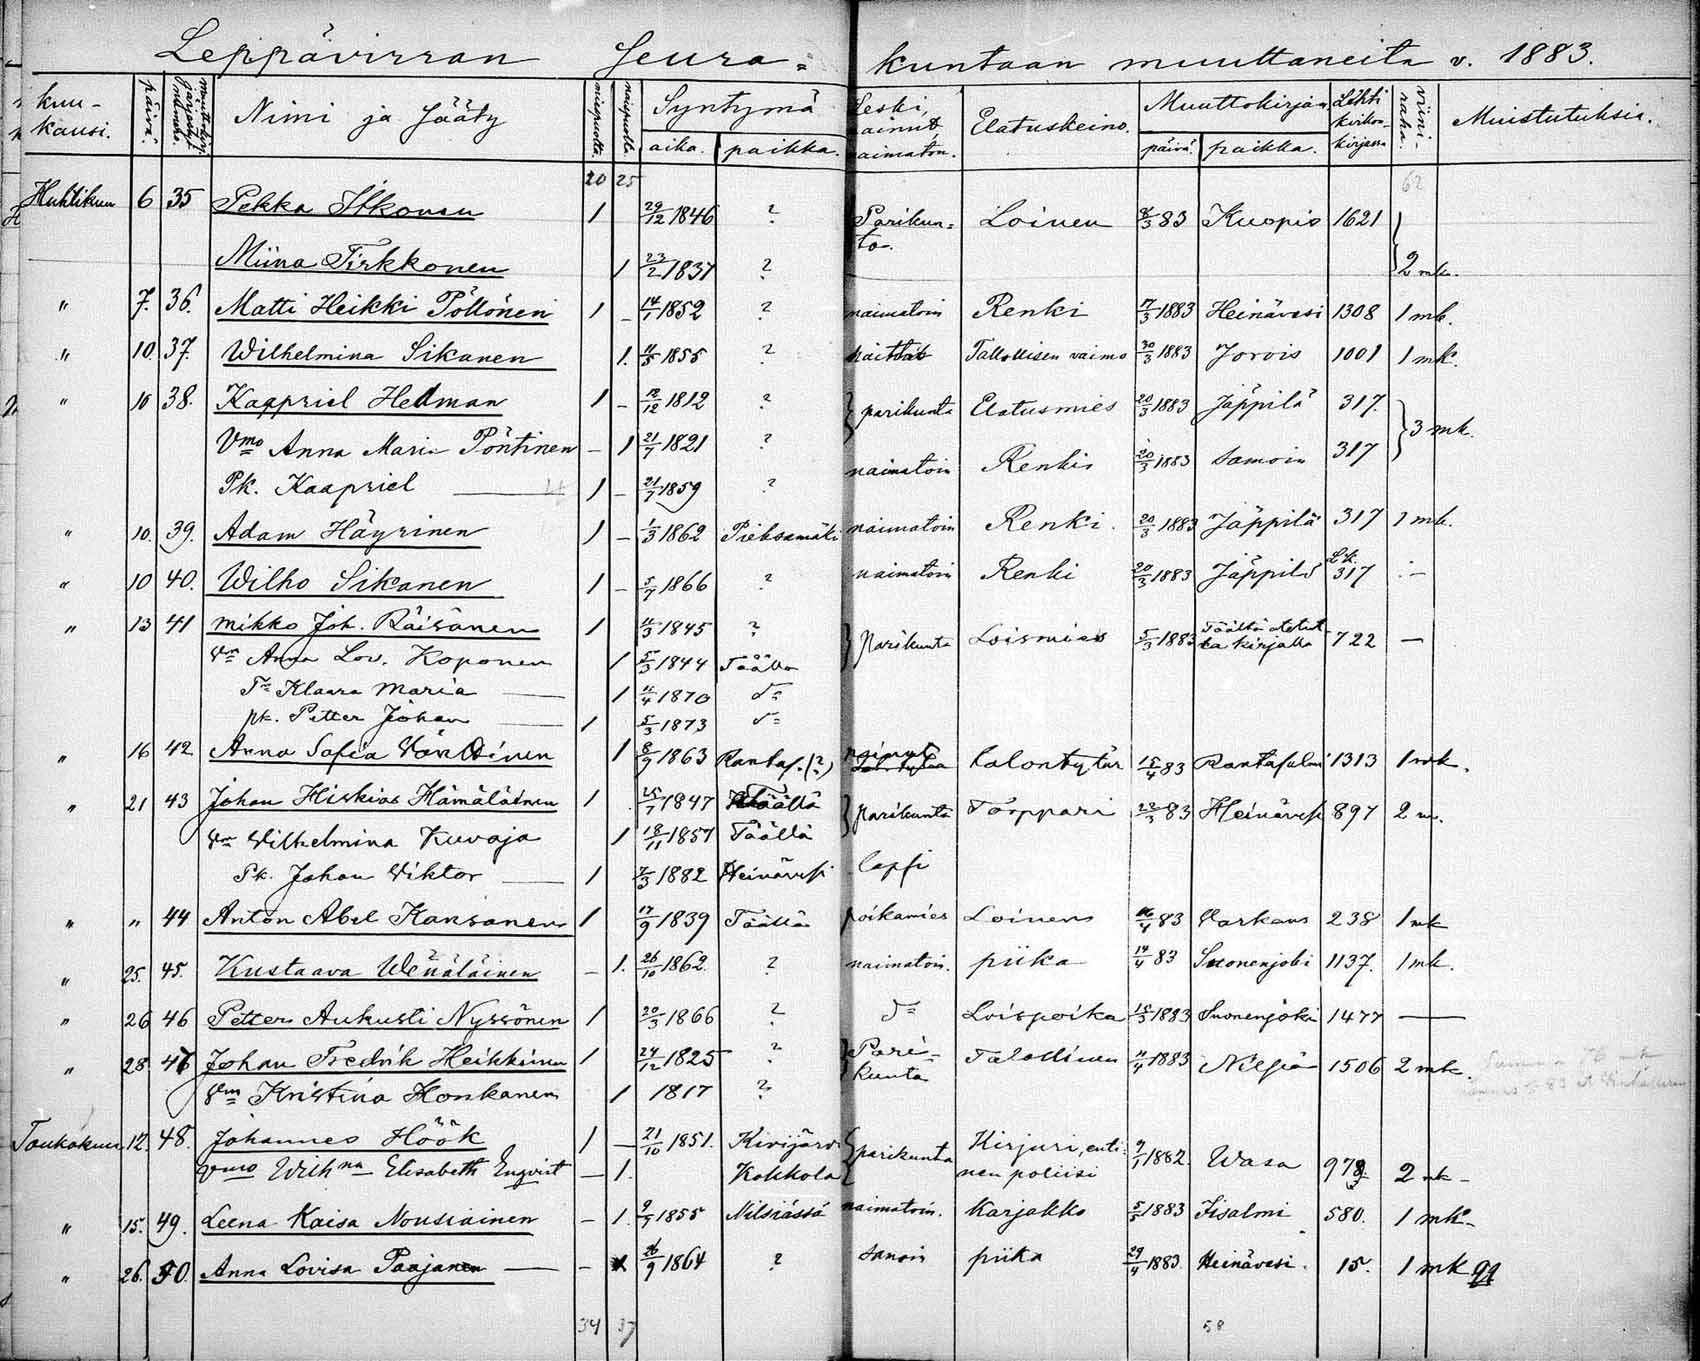 Leppävirran Seura= kuntaan muuttaneita v. 1883.
kuu-kausi. päivä. Nimi ja Sääty miespuolta. naispuolta. Syntymä aika. paikka. Leski, nainut, naimaton. Elatuskeino. Muuttokirjan päivä. paikka. Lehti kirkon-kirjassa viini-raha. Muistutuksia.
20 25 62
Huhtikuu 6 35 Pekka Itkonen 1 29/12 1846 ? Parikun=ta. Loinen 8/3 83 Kuopio 1621
Miina Tirkkonen 1 23/2 1837 ? 2 mk.
" 7. 36. Matti Heikki Pöllönen 1 - 14/1 1852 ? naimatoin Renki 17/3 1883 Heinävesi 1308 1 mk.
" 10. 37. Wilhelmina Sikanen 1. 1855 ? Talollisen vaimo 30/3 1883 Jorois 1001 1 mk.
" 10 38. Kaapriel Hedman 1 - 12/12 1812 ? parikunta Elatusmies 20/3 1883 Jäppilä 317.
Vmo Anna Maria Pöntinen - 1 21/7 1821 ? 3 mk.
Pk. Kaapriel — 1 - 21/7 1859 ? naimatoin Renki 20/3 1883 samoin 317
" 10. 39. Adam Häyrinen 1 - 1/3 1862 Pieksamäki naimatoin Renki. 20/3 1883 Jäppilä 317 1 mk.
" 10 40. Wilho Sikanen 1 - 5/7 1866 ? naimatoin Renki 20/3 1883 Jäppilä Lk. 317 -
" 13 41 Mikko Joh. Räisänen 1 1845 ? Parikunta Loismies 5/3 1883 Täältä otetulla kirjalla 722 —
Vm Anna Lov. Koponen 1 5/3 1844 Täällä
Tr Klaara Maria — 1 1870 do
pk. Petter Johan — 1 5/3 1873 do
" 16 42 Anna Sofia 1 8/9 1863 Rantas. (?) talontytär 83 Rantasalmi 1313 1 mk.
" 21 43 Johan Hiskias Hämäläinen 1 25/7 1847 Täällä parikunta Torppari 22/3 83 Heinävesi 897 2 m.
Vm Wilhelmina Kuvaja 1 18/11 1857 Täällä
Pk. Johan Viktor — 1 7/3 1882 Heinävesi lapsi
" " 44 Anton Abel Kansanen 1 17/9 1839 Täällä poikamies Loinen 16/4 83 Varkaus 238 1 mk
" 25. 45. Kustaava Wenäläinen - 1. 26/10 1862. ? naimatoin. piika 14/4 83 Suonenjoki 1137. 1 mk.
" 26 46 Petter Aukusti Nyssönen 1 20/3 1866 ? do Loispoika 15/3 1883 Suonenjoki 1477 —
" 28 47 Johan Fredrik Heikkinen 1 24/12 1825 ? Pari-kunta Talollinen 11/4 1883 Nilsiä 1506 2 mk.
Vm Kristina Honkanen 1 1817 ?
Toukokuu 12. 48. Johannes Höök 1 — 21/10 1851. Kivijärvi parikunta Kirjuri, enti-nen poliisi 9/1 1882. Wasa 978. 2 mk -
Vmo Wilhna Elisabeth Enqvist — 1. Kokkola
" 15. 49. Leena Kaisa Nousiainen - 1. 9/9 1855 Nilsiässä naimatoin. Karjakko 5/5 1883 Iisalmi 580. 1 mk -
" 26. 50. Anna Lovisa Paajanen — - 26/9 1864 ? samoin piika 29/4 1883. Heinävesi. 15. 1 mk
34 37 58